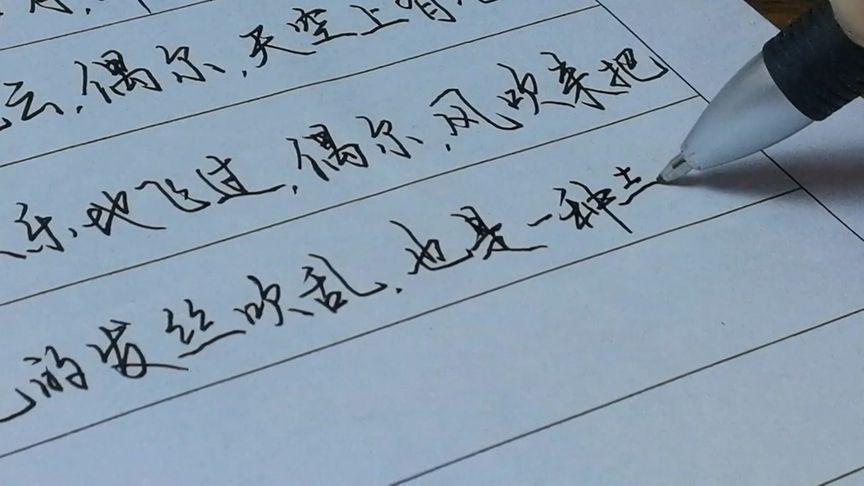 云,偶尔,天空上有
乐,地飞过,偶尔,风吹来把
的发丝吹乱,也是一种